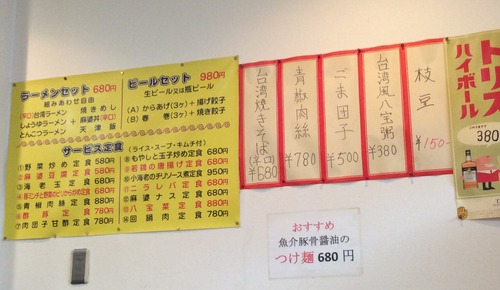 ラーメンセット 680円
組みあわせ自由
(辛口)台湾ラーメン 焼きめし
しょうゆラーメン + 麻婆丼(辛口)
とんこつラーメン 天津飯
ビールセット 980円
生ビール又は瓶ビール
(A) からあげ(3ヶ)+揚げ餃子
(B) 春巻(3ヶ)+焼き餃子
サービス定食
(ライス・スープ・キムチ付)
①野菜炒め定食 580円
②麻婆豆腐定食 580円
③海老玉定食 680円
⑤青椒肉絲定食 880円
⑥酢豚定食 780円
⑦肉団子甘酢定食 780円
⑧もやしと玉子炒め定食 680円
⑨若鶏の唐揚げ定食 680円
⑩小海老のチリソース煮定食 950円
⑪ニラレバ定食 680円
⑫麻婆ナス定食 780円
⑬八宝菜定食 880円
⑭回鍋肉定食 780円
台湾焼きそば(辛口) ¥680
青椒肉絲 ¥780
ごま団子 ¥500
台湾風八宝粥 ¥380
枝豆 ¥150-
おすすめ
魚介豚骨醤油の
つけ麺 680円
トリス
ハイボール
380